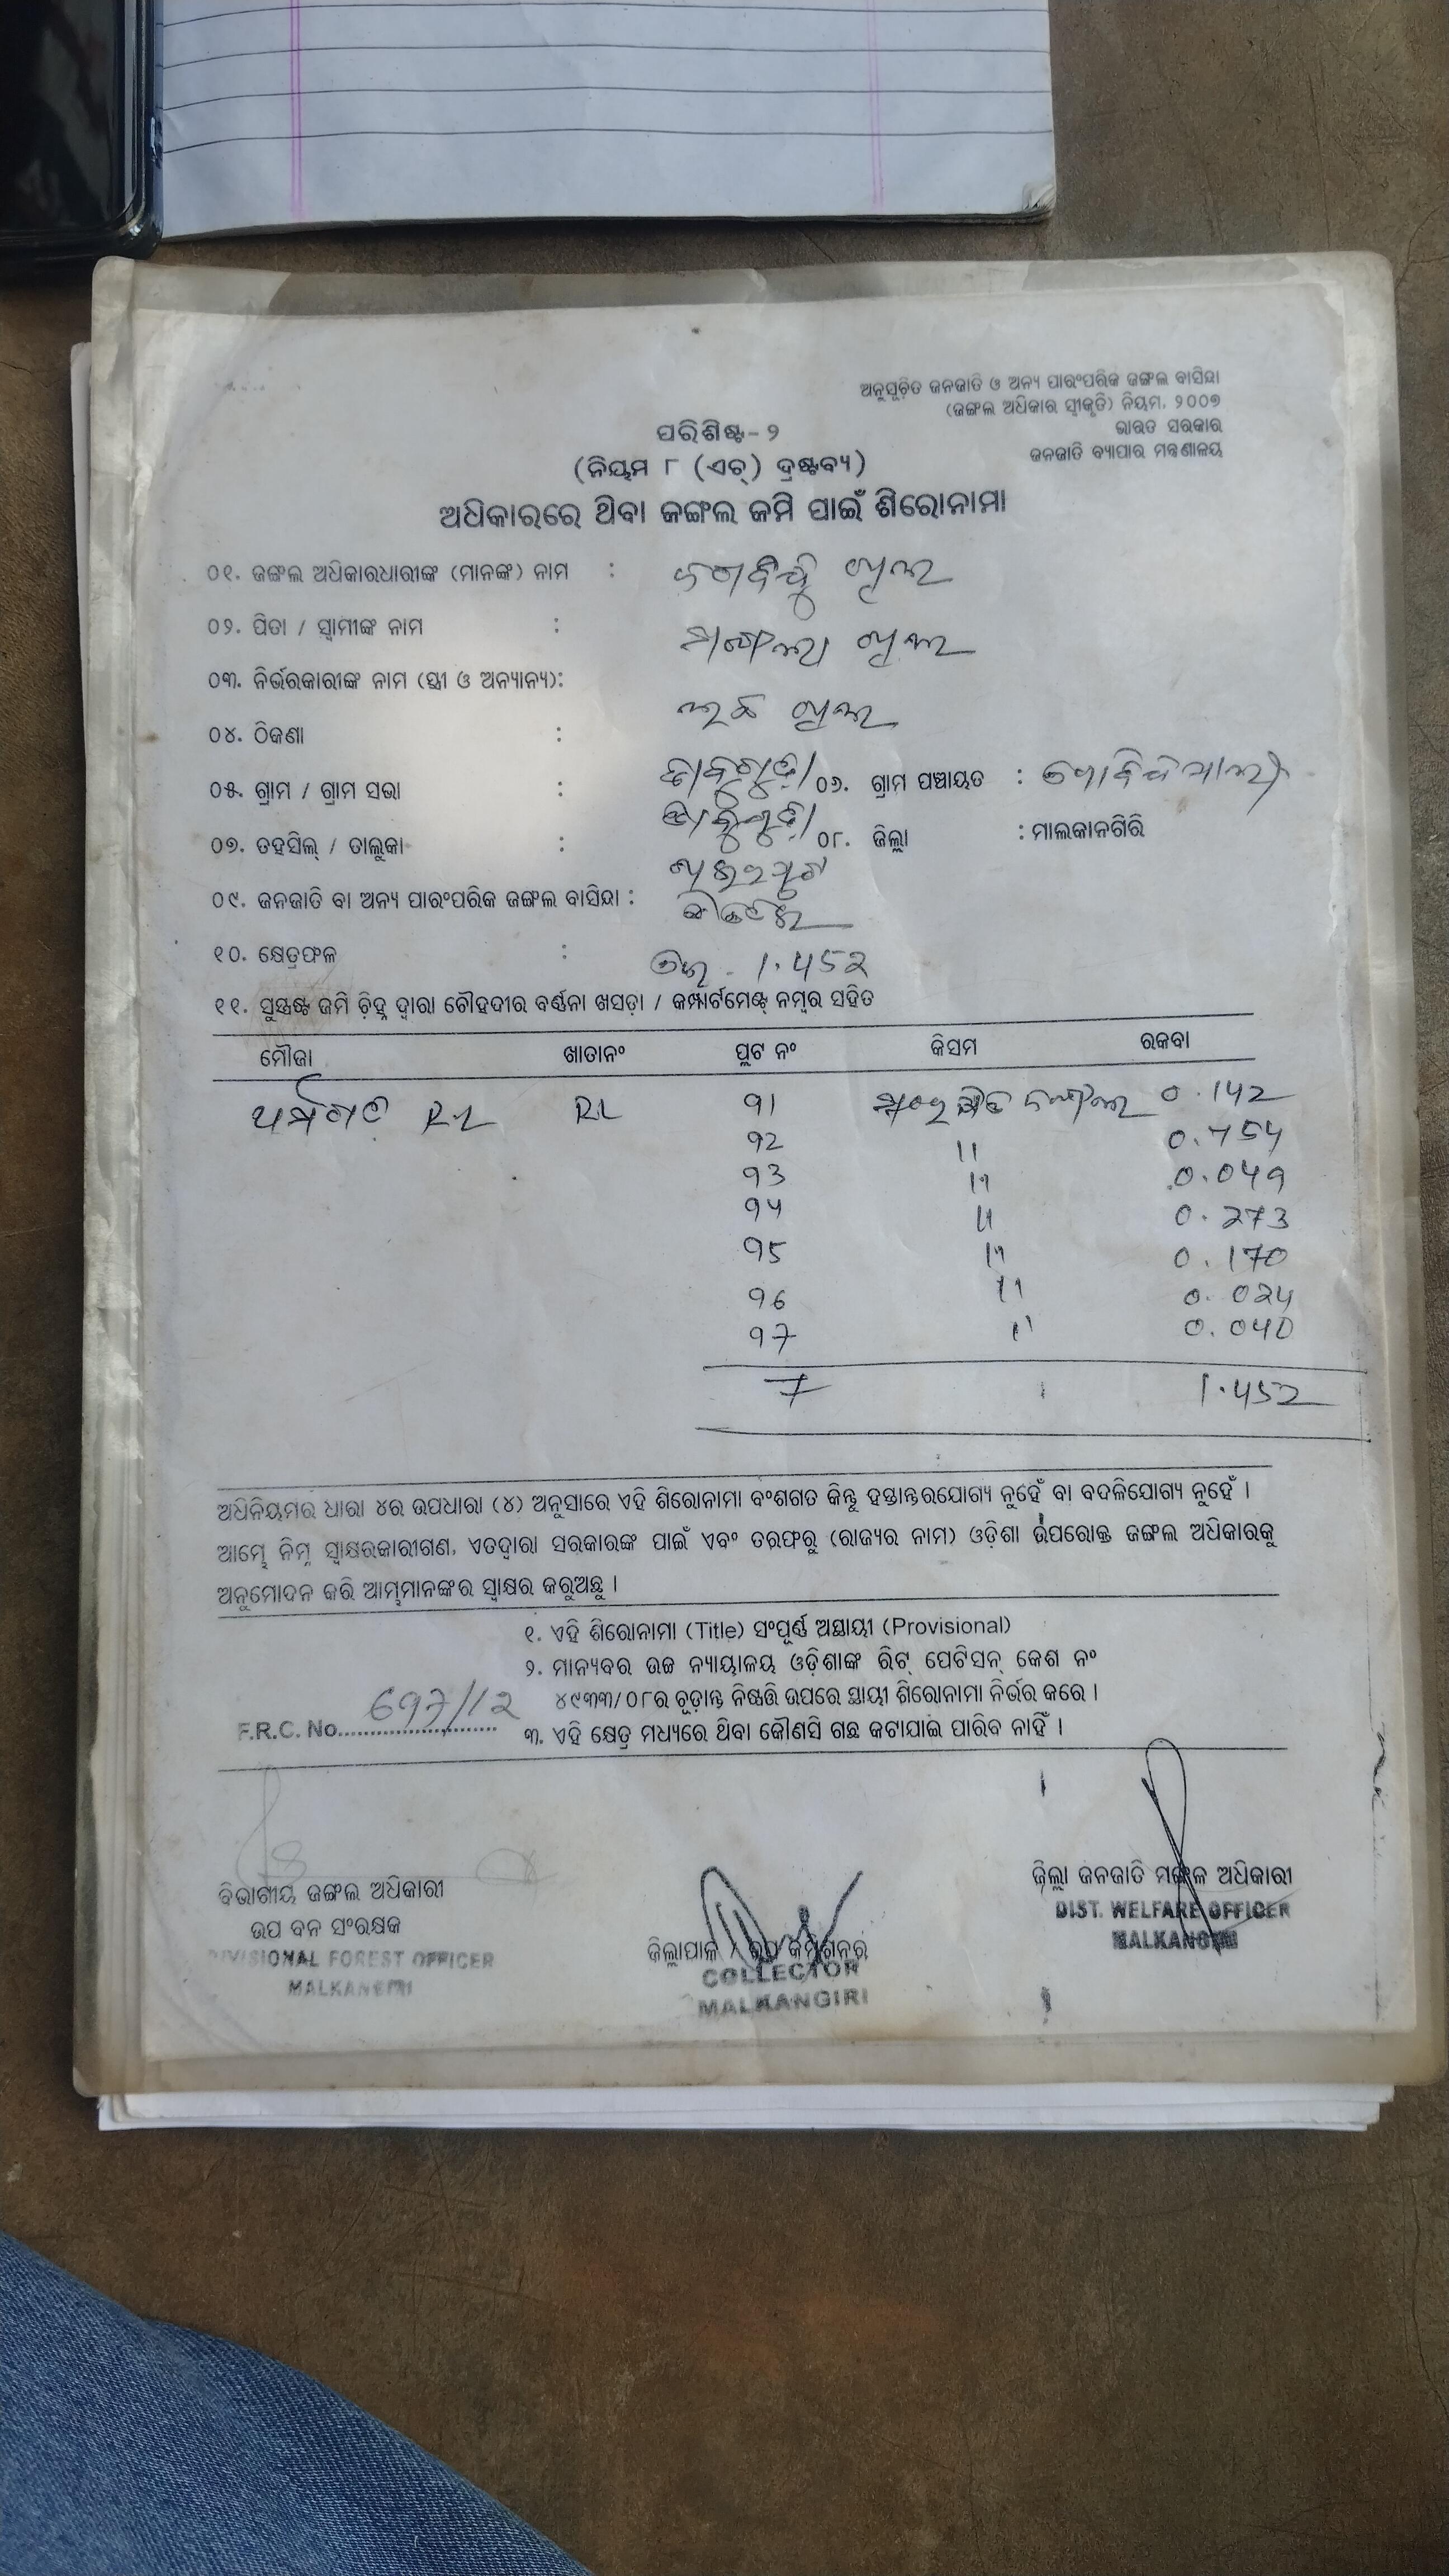 ଅନୁସୂଚିତ ଜନଜାତି ଓ ଅନ୍ୟ ପାରଂପରିକ ଜଙ୍ଗଲ ବାସିନ୍ଦା
(ଜଙ୍ଗଲ ଅଧିକାର ସ୍ୱୀକୃତି) ନିୟମ, ୨୦୦୭
ଭାରତ ସରକାର
ଜନଜାତି ବ୍ୟାପାର ମନ୍ତ୍ରଣାଳୟ
ପରିଶିଷ୍ଟ-୨
(ନିୟମ ୮ (ଏଚ୍) ଦ୍ରଷ୍ଟବ୍ୟ)
ଅଧିକାରରେ ଥିବା ଜଙ୍ଗଲ ଜମି ପାଇଁ ଶିରୋନାମା
୦୧. ଜଙ୍ଗଲ ଅଧିକାରଧାରୀଙ୍କ (ମାନଙ୍କ) ନାମ :
୦୨. ପିତା / ସ୍ୱାମୀଙ୍କ ନାମ :
୦୩. ନିର୍ଭରକାରୀଙ୍କ ନାମ (ସ୍ତ୍ରୀ ଓ ଅନ୍ୟାନ୍ୟ):
୦୪. ଠିକଣା :
୦୫. ଗ୍ରାମ / ଗ୍ରାମ ସଭା : ୦୬. ଗ୍ରାମ ପଞ୍ଚାୟତ :
୦୭. ତହସିଲ୍ / ତାଲୁକା : ୦୮. ଜିଲ୍ଲା : ମାଲକାନଗିରି
୦୯. ଜନଜାତି ବା ଅନ୍ୟ ପାରଂପରିକ ଜଙ୍ଗଲ ବାସିନ୍ଦା :
୧୦. କ୍ଷେତ୍ରଫଳ : 1.452
୧୧. ସୁସ୍ପଷ୍ଟ ଜମି ଚିହ୍ନ ଦ୍ୱାରା ଚୌହଦୀର ବର୍ଣ୍ଣନା ଖସଡ଼ା / କମ୍ପାର୍ଟମେଣ୍ଟ୍ ନମ୍ବର ସହିତ
ମୌଜା ଖାତାନଂ ପ୍ଲଟ ନଂ କିସମ ରକବା
RL 91 0.142
92 " 0.754
93 " 0.049
94 " 0.273
95 " 0.170
96 " 0.024
97 " 0.040
7 1.452
ଅଧିନିୟମର ଧାରା ୪ର ଉପଧାରା (୪) ଅନୁସାରେ ଏହି ଶିରୋନାମା ବଂଶଗତ କିନ୍ତୁ ହସ୍ତାନ୍ତରଯୋଗ୍ୟ ନୁହେଁ ବା ବଦଳିଯୋଗ୍ୟ ନୁହେଁ ।
ଆମ୍ଭେ ନିମ୍ନ ସ୍ୱାକ୍ଷରକାରୀଗଣ, ଏତଦ୍ଦ୍ୱାରା ସରକାରଙ୍କ ପାଇଁ ଏବଂ ତରଫରୁ (ରାଜ୍ୟର ନାମ) ଓଡ଼ିଶା ଉପରୋକ୍ତ ଜଙ୍ଗଲ ଅଧିକାରକୁ
ଅନୁମୋଦନ କରି ଆମ୍ଭମାନଙ୍କର ସ୍ୱାକ୍ଷର କରୁଅଛୁ ।
୧. ଏହି ଶିରୋନାମା (Title) ସଂପୂର୍ଣ୍ଣ ଅସ୍ଥାୟୀ (Provisional)
୨. ମାନ୍ୟବର ଉଚ୍ଚ ନ୍ୟାୟାଳୟ ଓଡ଼ିଶାଙ୍କ ରିଟ୍ ପେଟିସନ୍ କେଶ ନଂ
୪୯୩୩/୦୮ର ଚୂଡ଼ାନ୍ତ ନିଷ୍ପତ୍ତି ଉପରେ ସ୍ଥାୟୀ ଶିରୋନାମା ନିର୍ଭର କରେ ।
F.R.C. No. 697/12
୩. ଏହି କ୍ଷେତ୍ର ମଧ୍ୟରେ ଥିବା କୌଣସି ଗଛ କଟାଯାଇ ପାରିବ ନାହିଁ ।
ବିଭାଗୀୟ ଜଙ୍ଗଲ ଅଧିକାରୀ
ଉପ ବନ ସଂରକ୍ଷକ
DIVISIONAL FOREST OFFICER
MALKANGIRI
ଜିଲ୍ଲାପାଳ / ଉପ କମିଶନର
COLLECTOR
MALKANGIRI
ଜିଲ୍ଲା ଜନଜାତି ମଙ୍ଗଳ ଅଧିକାରୀ
DIST. WELFARE OFFICER
MALKANGIRI